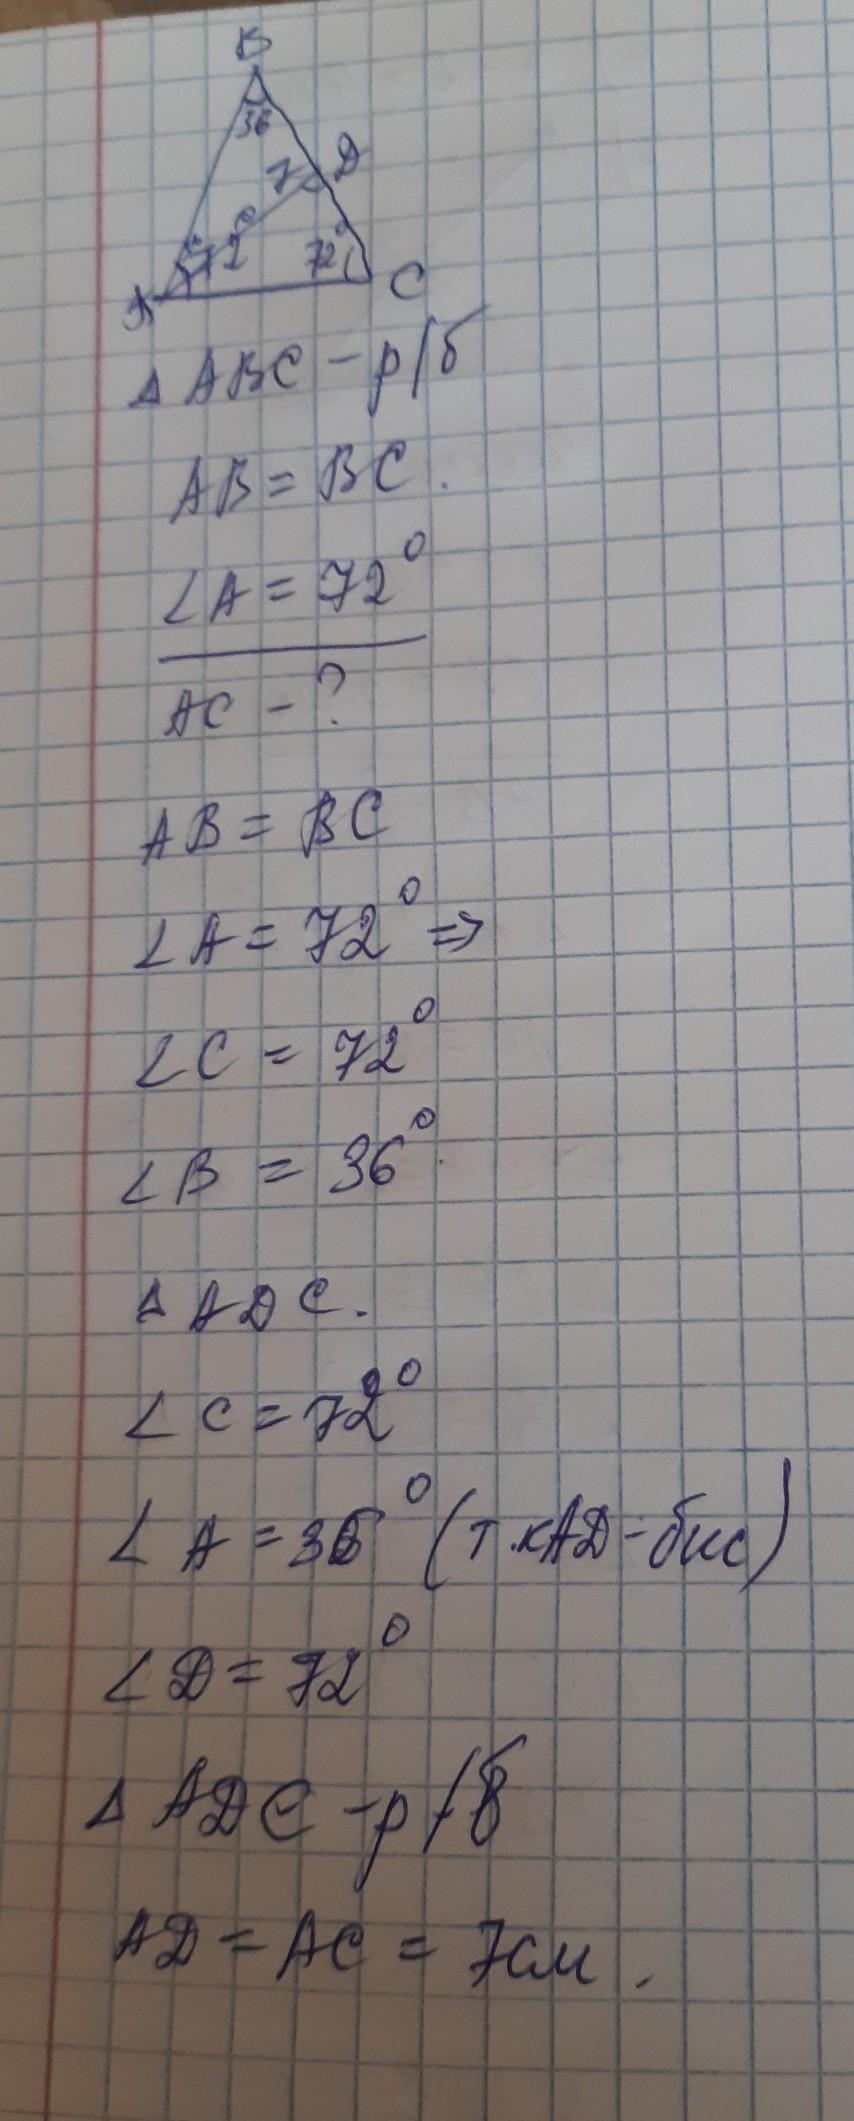 B
36
7 D
72°
72°
A
C
△ ABC - р/б
AB = BC.
∠A = 72°
AC - ?
AB = BC
∠A = 72° ⇒
∠C = 72°
∠B = 36°
△ ADC.
∠C = 72°
∠A = 36° (т.к AD - бис)
∠D = 72°
△ ADC - р/б
AD = AC = 7см.